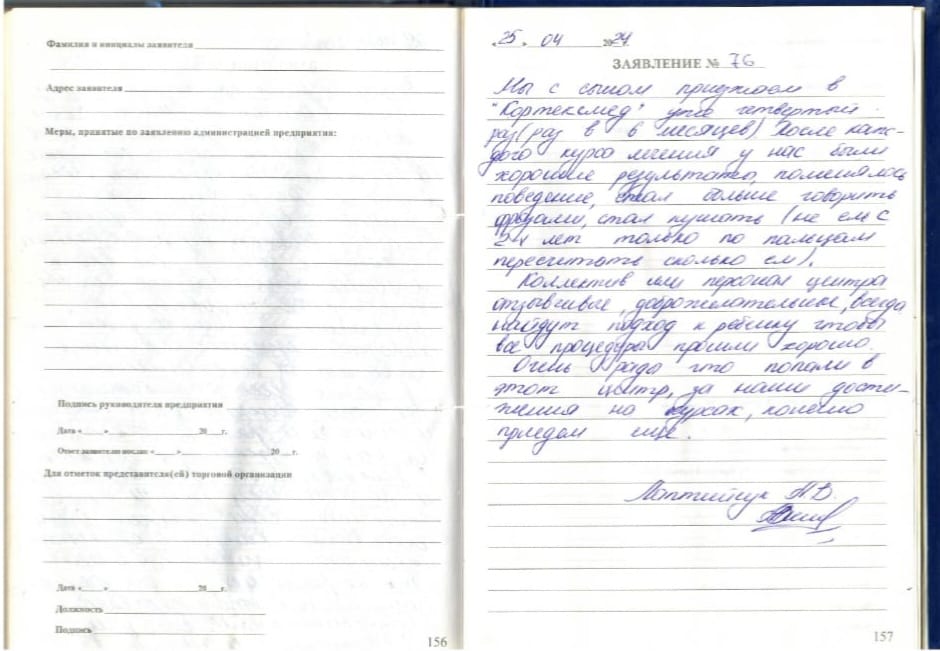 Фамилия и инициалы заявителя
Адрес заявителя
Меры, принятые по заявлению администрацией предприятия:
Подпись руководителя предприятия
Дата «   »   20   г.
Ответ заявителю послан: «   »   20   г.
Для отметок представителя(ей) торговой организации
Дата «   »   20   г.
Должность
Подпись
156
«25» 04 2024
ЗАЯВЛЕНИЕ № 76
Мы с сыном приезжаем в
"Кортексмед" уже четвертый
раз (раз в 6 месяцев) После каж-
дого курса лечения у нас были
хорошие результаты, поменялось
поведение, стал больше говорить
фразами, стал кушать (не ел с
2х лет только по пальцам
пересчитать сколько ел).
Коллектив или персонал центра
отзывчивые, доброжелательные, всегда
найдут подход к ребенку чтобы
все процедуры прошли хорошо.
Очень рада что попали в
этот центр, за наши дости-
жения на курсах, конечно
приедем еще.
157